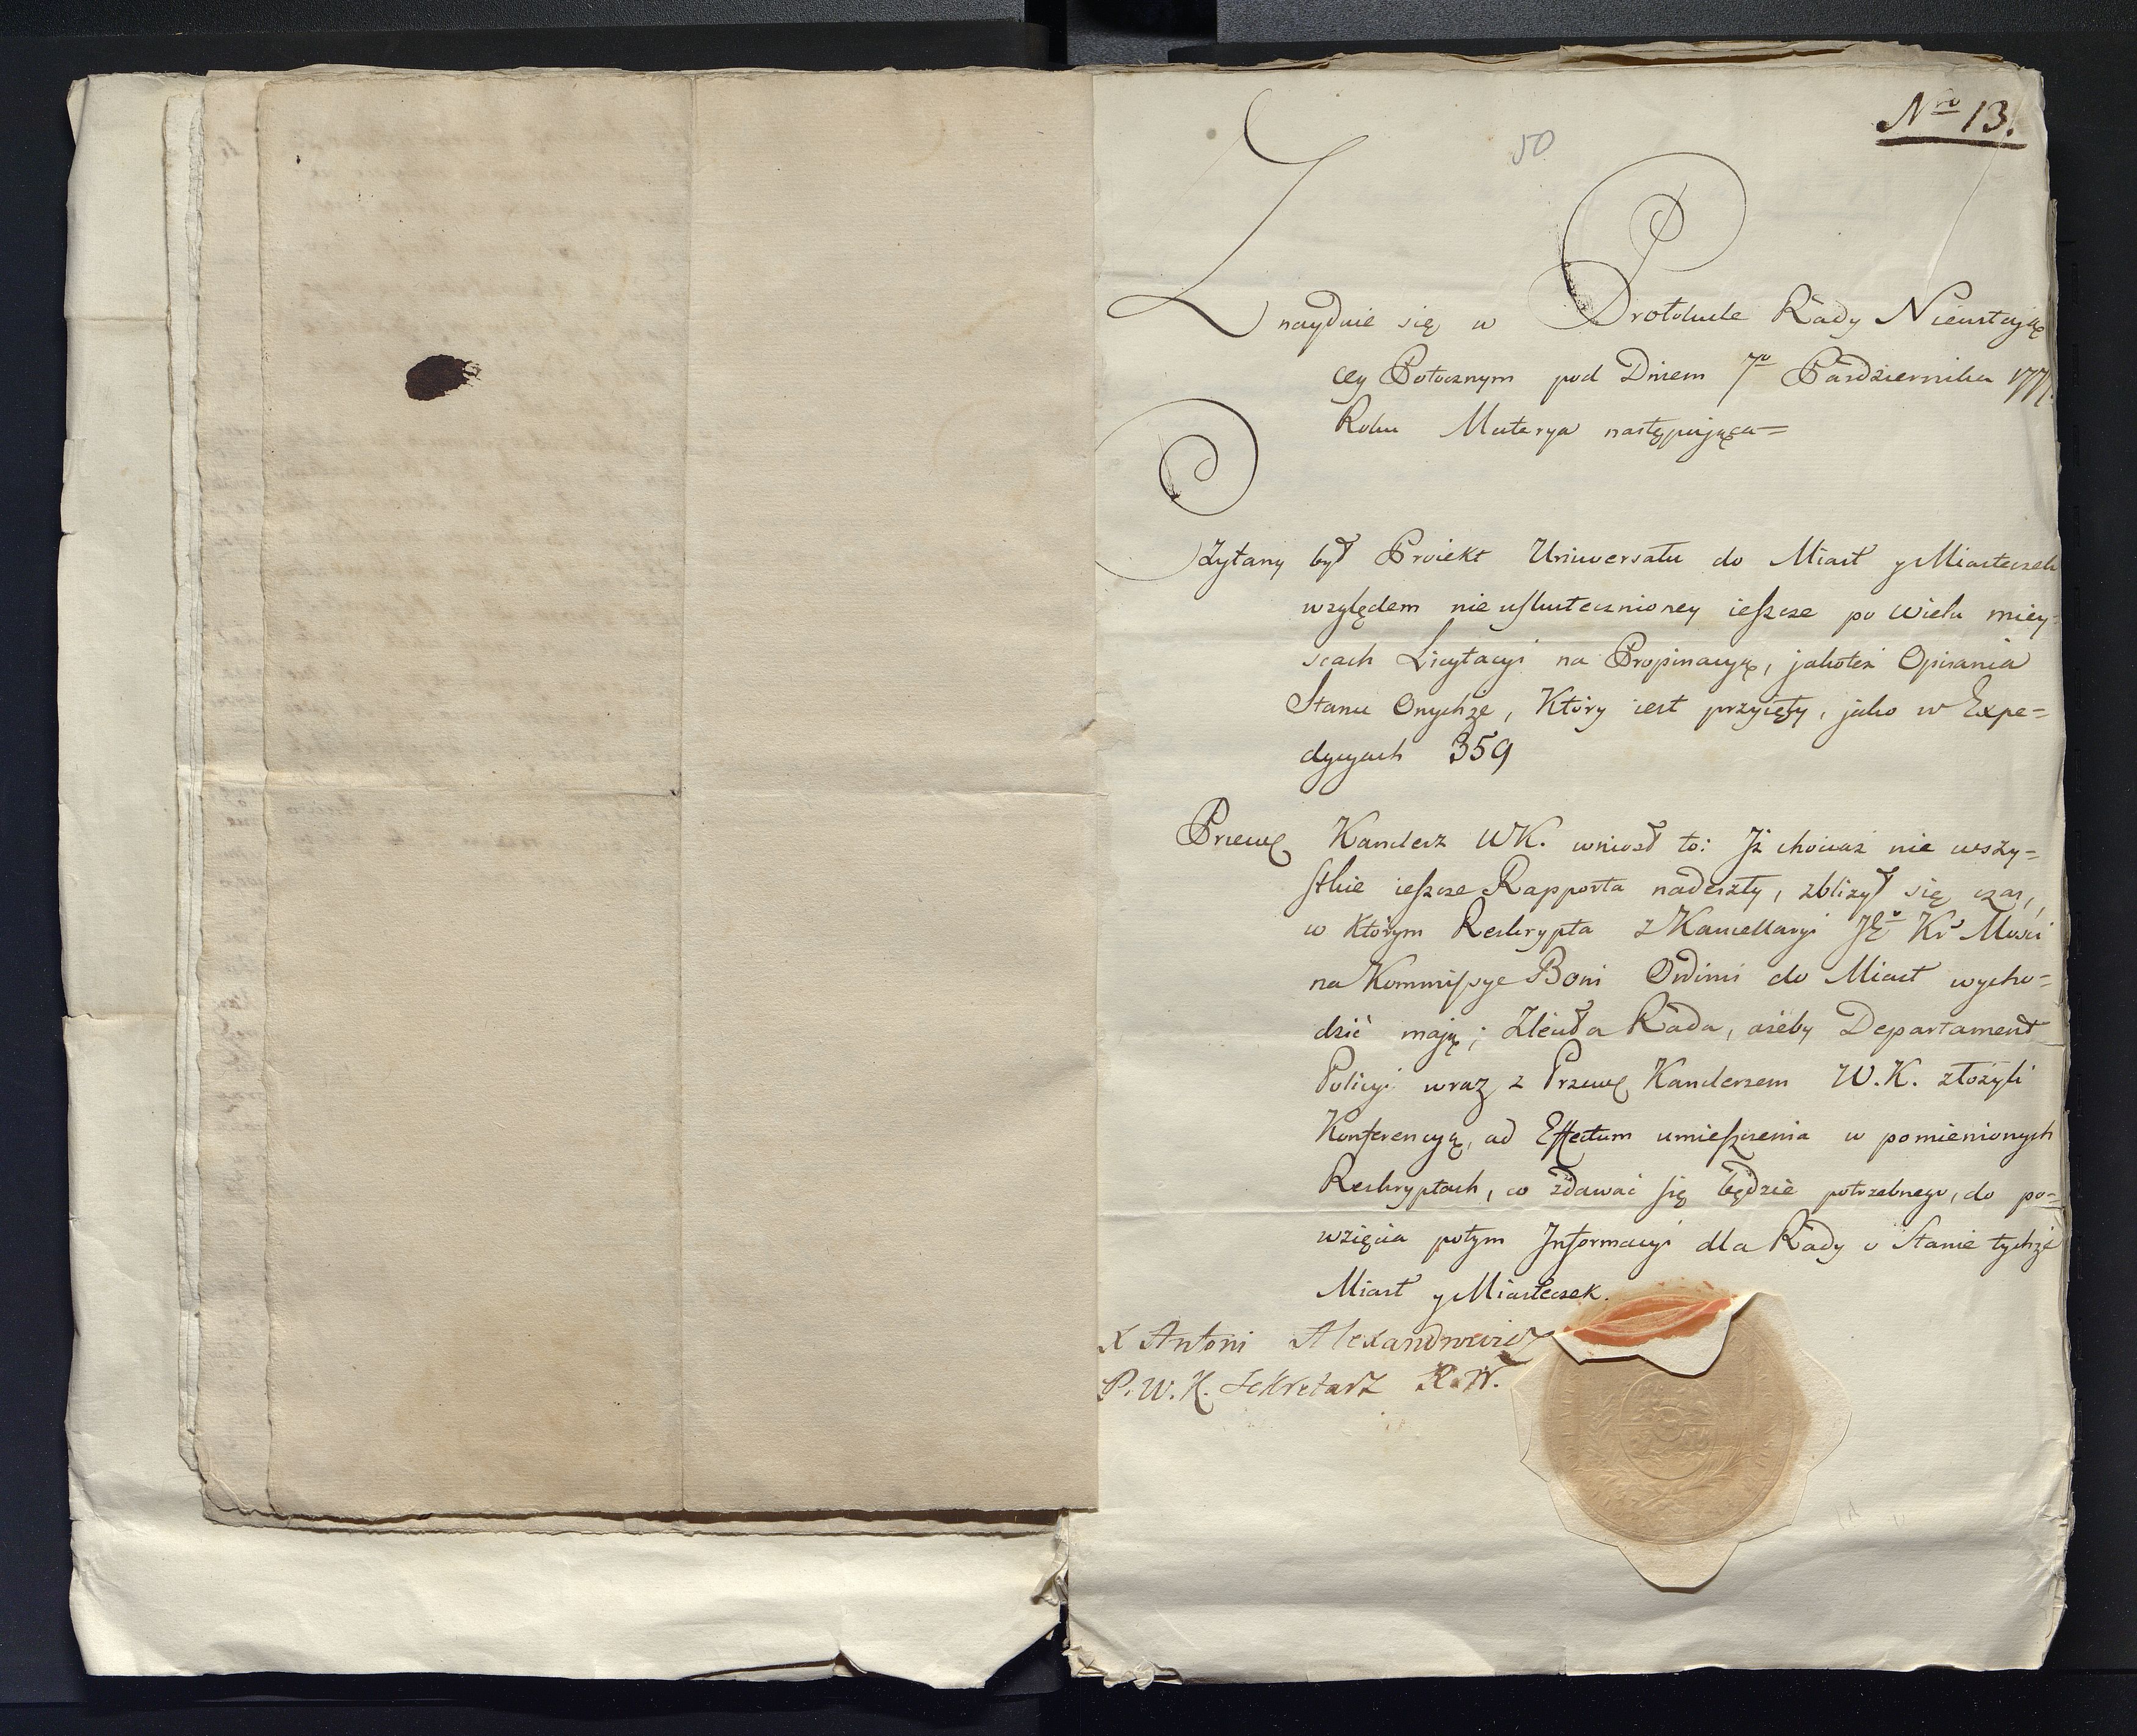 Nro 13.
50
Znayduie się w Protokule Rady Nieustaią
cey Potocznym pod Dniem 7o Pazdziernika 177
Roku Materya następuiąca=
Czytany był Proiekt Uniwersału do Miast y Miasteczek
względem nieuskutecznioney ieszcze po wielu miey-
scach Licytacyi na Propinacyą, jakoteż Opisania
Stanu Onychże, Który iest przyięty, jako w Expe=
dycyach 359
Przew Kanclerz WK. wniosł to: Jż chociaz nie wszy=
stkie ieszcze Rapporta nadeszły, zbliżył się czas,
w którym Reskrypta z Kancellaryi JE Kr Mości
na Kommissye Boni Ordinis do Miast wycho=
dzić mają; Zleciła Rada, ażeby Departament
Policyi wraz z Przew Kanclerzem W.K. złożyli
Konferencyą, ad Effectum umieszczenia w pomienionych
Reskryptach, co zdawać się będzie potrzebnego, do po=
wzięcia potym Informacyi dla Rady o Stanie tychże
Miast y Miasteczek.
X Antoni Alexandrowicz
P. W. K. Sekretarz R. N.